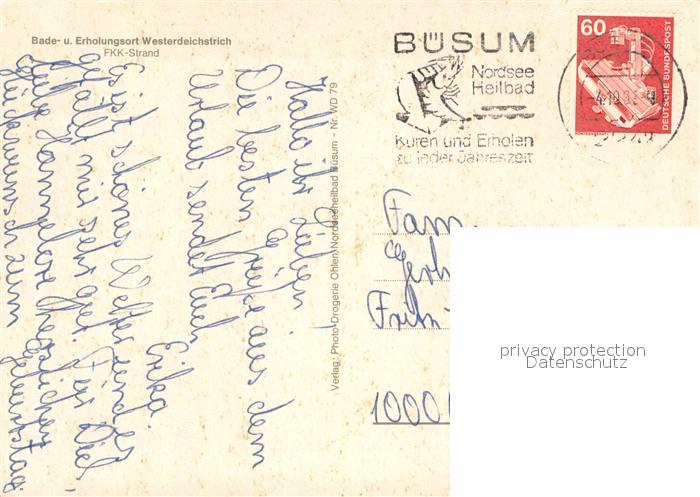 Bade- u. Erholungsort Westerdeichstrich
FKK-Strand
Hallo ihr Lieben!
Die besten Grüße aus dem
Urlaub sendet Euch
Erika.
Es ist schönes Wetter und es
gefällt mir sehr gut. Für Die
liebe Hannelore herzlichen
Glückwunsch zum Geburtstag.
Verlag: Photo-Drogerie Ohlen Nordseeheilbad Büsum - Nr. WD 79
BÜSUM
Nordsee
Heilbad
Kuren und Erholen
zu jeder Jahreszeit
60
DEUTSCHE BUNDESPOST
Fam.
Gerh
1000
privacy protection
Datenschutz